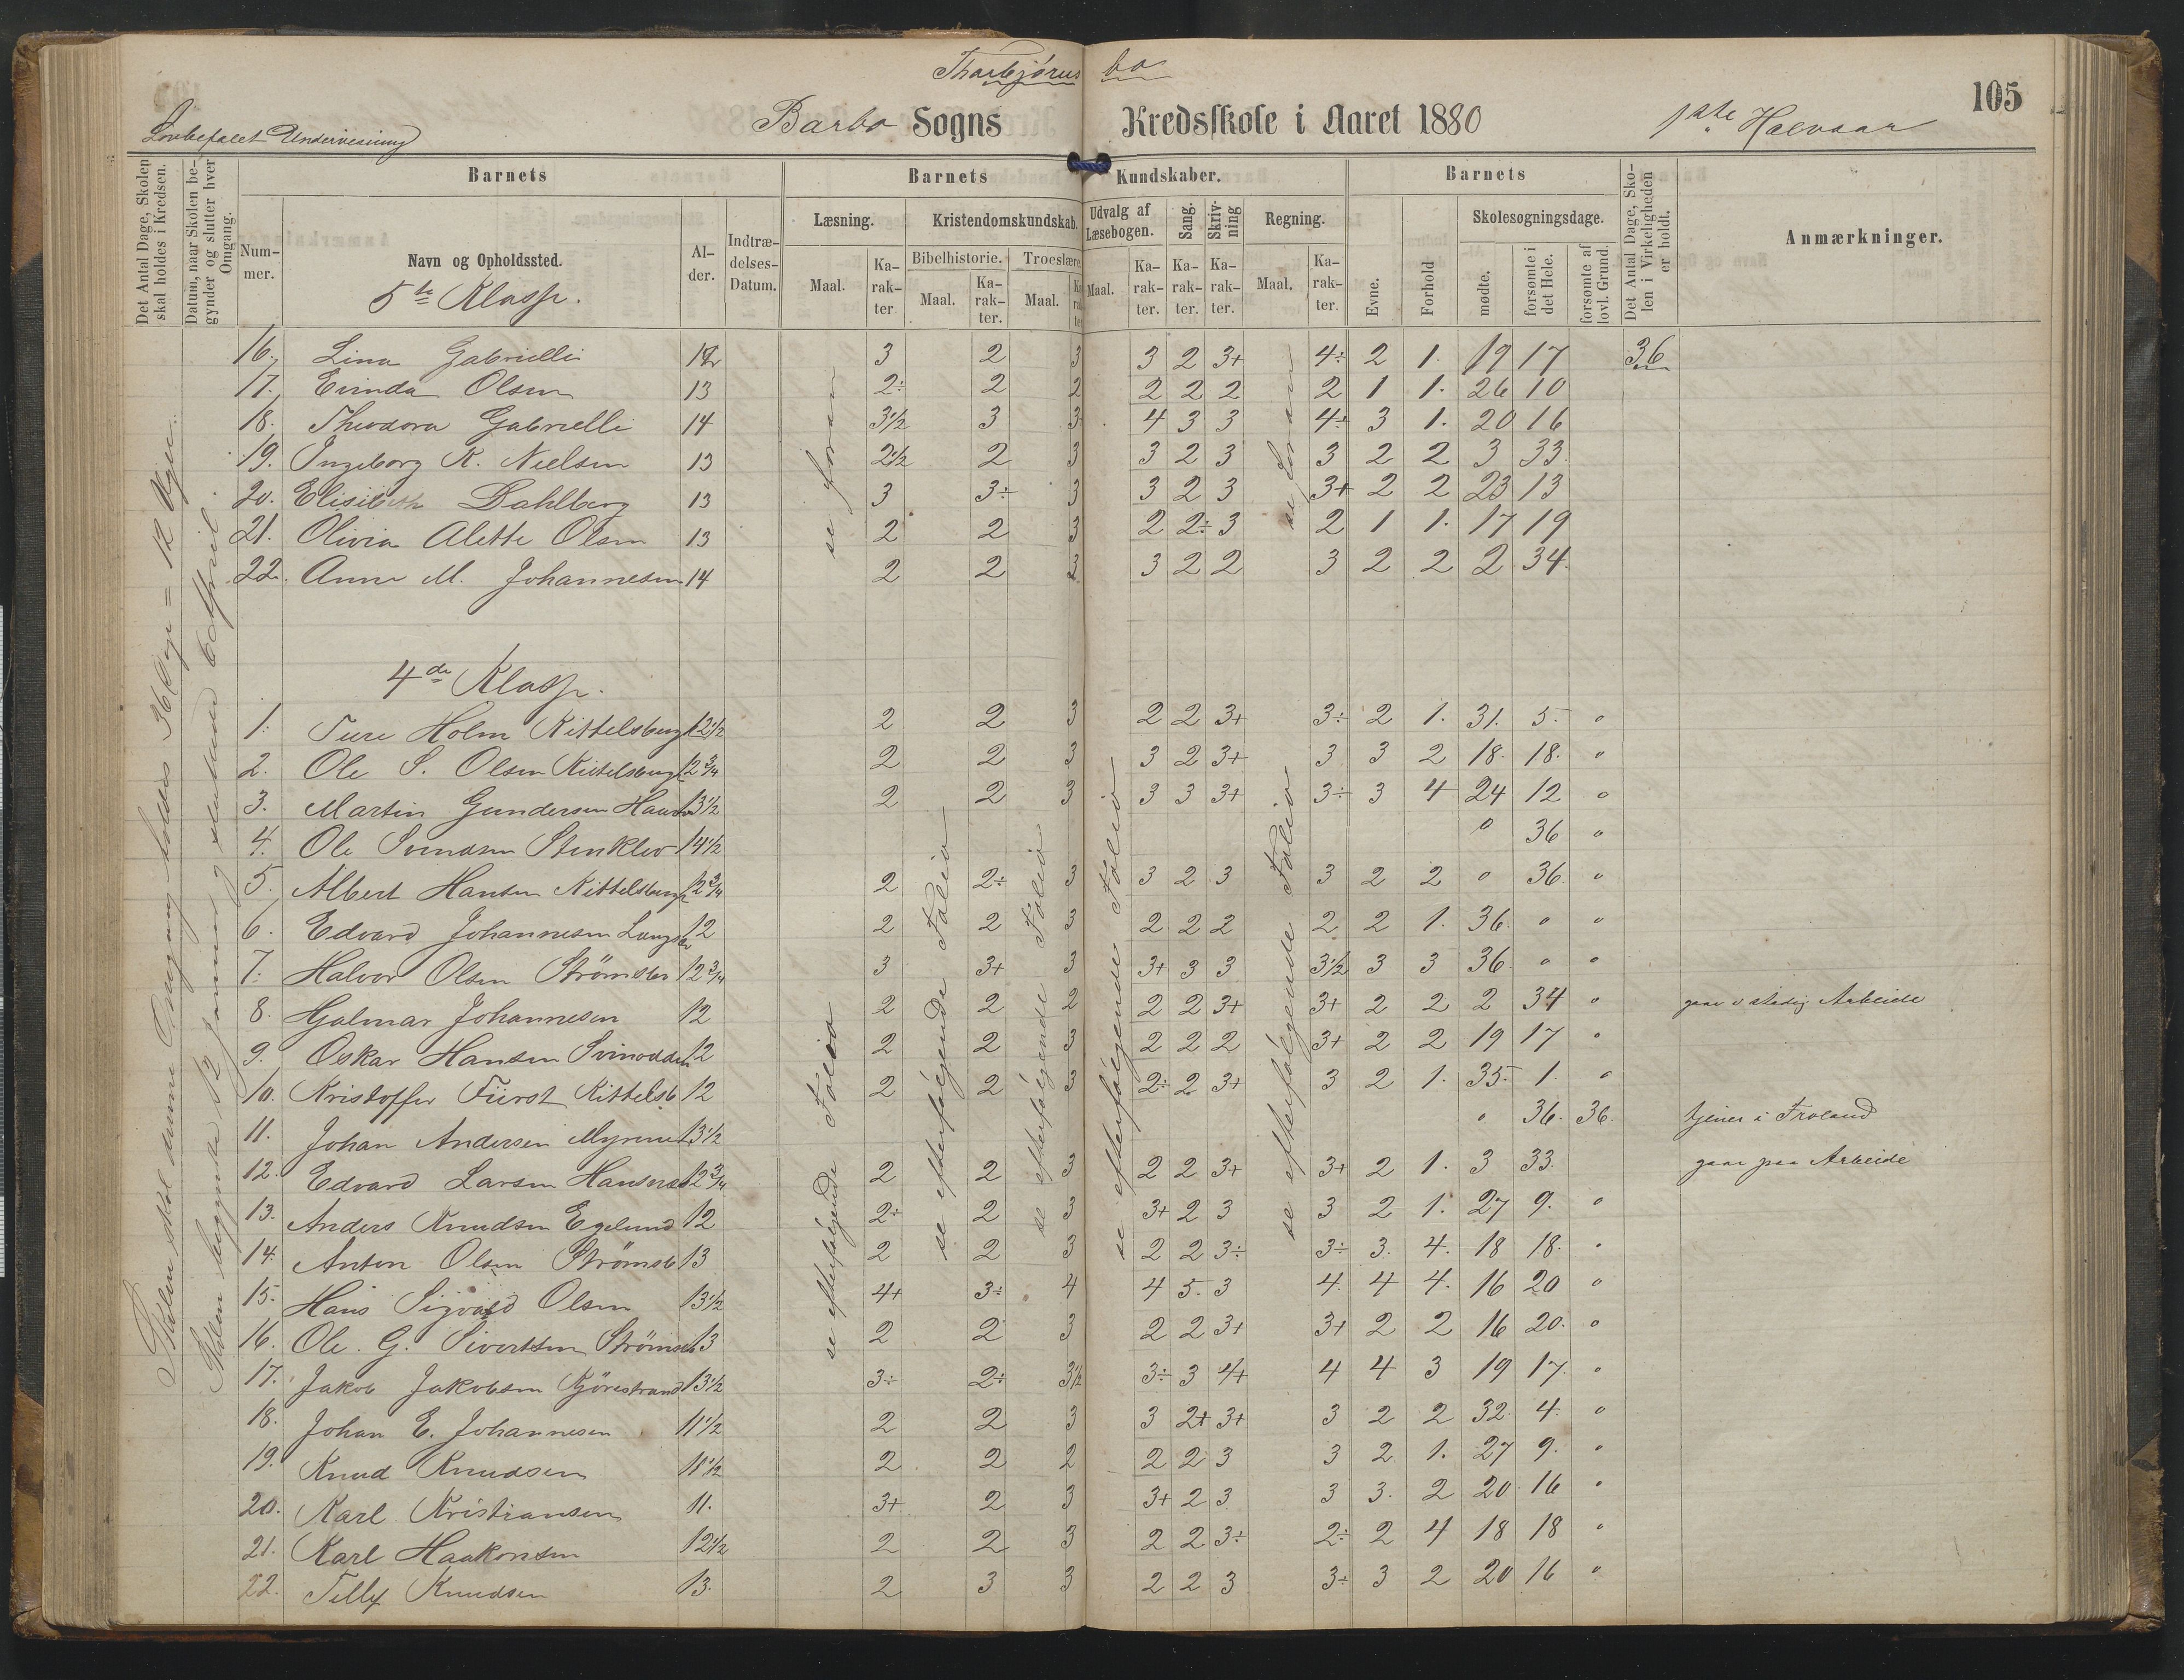 Thorbjørns bo
105
Lovbefalet Undervisning
Barbo Sogns Kredsskole i Aaret 1880
1ste Halvaar
Det Antal Dage, Skolen skal holdes i Kredsen.
Datum, naar Skolen begynder og slutter hver Omgang.
Barnets
Barnets Kundskaber.
Barnets
Det Antal Dage, Skolen i Virkeligheden er holdt.
Anmærkninger.
Nummer.
Navn og Opholdssted.
Alder.
Indtrædelses-Datum.
Læsning.
Kristendomskundskab.
Udvalg af Læsebogen.
Sang.
Skrivning
Regning.
Evne.
Forhold
Skolesøgningsdage.
Bibelhistorie.
Troeslære
Maal.
Karakter
Maal.
Karakter.
Maal.
Karakter
Maal.
Karakter.
Karakter.
Karakter.
Maal.
Karakter.
mødte.
forsømte i det Hele.
forsømte af lovl. Grund.
5te Klasse.
16. Lina Gabrielli 12 3 2 3 3 2 3+ 4÷ 2 1. 19 17 36
17. Evinda Olsen 13 2÷ 2 2 2 2 2 2 1 1. 26 10
18. Theodora Gabrielli 14 3½ 3 3 4 3 3 4÷ 3 1. 20 16
19. Ingeborg K. Nielsen 13 2½ 2 3 3 2 3 3 2 2 3 33.
20. Elisibeth Dahlberg 13 3 3÷ 3 3 2 3 3+ 2 2 23 13
21. Olivia Alette Olsen 13 2 2 3 2 2÷ 3 2 1 1. 17 19
22. Anne M. Johannesen 14 2 2 3 3 2 2 3 2 2 2 34.
se foran
se foran
4de Klasse.
1. Ture Holm Kittelsbugt 12½ 2 2 3 2 2 3+ 3÷ 2 1. 31. 5. 0
2. Ole S. Olsen Kittelsbugt 12¾ 2 2 3 3 2 3+ 3 3 2 18. 18. 0
3. Martin Gundersen 13½ 2 2 3 3 3 3+ 3÷ 3 4 24 12 0
4. Ole Svendsen Stenklev 14½ 0 36 0
5. Albert Hansen Kittelsbugt 12¾ 2 2÷ 3 3 2 3 3 2 2 0 36. 0
6. Edvard Johannesen 12 2 2 3 2 2 2 2 2 1. 36. 0 0
7. Halvor Olsen Strømsbo 12¾ 3 3+ 3 3+ 3 3 3½ 3 3 36. 0 0
8. Hjalmar Johannesen 12 2 2 2 2 2 3+ 3+ 2 2 2 34 0 gaar i stadig Arbeide
9. Oskar Hansen Svinodden 12 2 2 3 2 2 2 3+ 2 2 19 17 0
10. Kristoffer Fürst Kittelsb 12 2 2 3 2÷ 2 3+ 3 2 1. 35. 1. 0
11. Johan Andersen Myrene 13½ 0 36. 36. tjener i Froland
12. Edvard Larsen 12¾ 2 2 3 2 2 3+ 3+ 2 1. 3 33. gaar paa Arbeide
13. Anders Knudsen Egelund 12 2÷ 2 3 3+ 2 3 3 2 1. 27 9. 0
14. Anton Olsen Strømsb 13 2 2 3 2 2 3÷ 3÷ 3. 4. 18 18. 0
15. Hans Sigvald Olsen 13½ 4+ 3÷ 4 4 5. 3 4. 4 4. 16 20 0
16. Ole. G. Sivertsen Strømsb 13 2 2 3 2 2 3+ 3+ 2 2 16 20. 0
17. Jakob Jakobsen Kjørestrand 13½ 3÷ 2÷ 3½ 3÷ 3 4+ 4 4 3 19 17. 0
18. Johan E. Johannesen 11½ 2 2 3 3 2+ 3+ 3 2 2 32. 4. 0
19. Knud Knudsen 11½ 2 2 2 2 2 3 3 2 1. 27 9. 0
20. Karl Kristiansen 11. 3+ 2 3 3+ 2 3 3 3. 2 20. 16 0
21. Karl Haakonsen 12½ 2 2 3 2 2 3÷ 2÷ 2 4 18 18 0
22. Telly Knudsen 13. 2 3 3 2 2 3 3÷ 3 2 20 16 0
se efterfølgende Folioa
se efterfølgende Folio
se efterfølgende Folio
se efterfølgende Folio
se efterfølgende Folio
Skolen skal denne Omgang holdes 36 Dage = 12 Uger.
Skolen begyndte 12 Januar og sluttede 6 April.